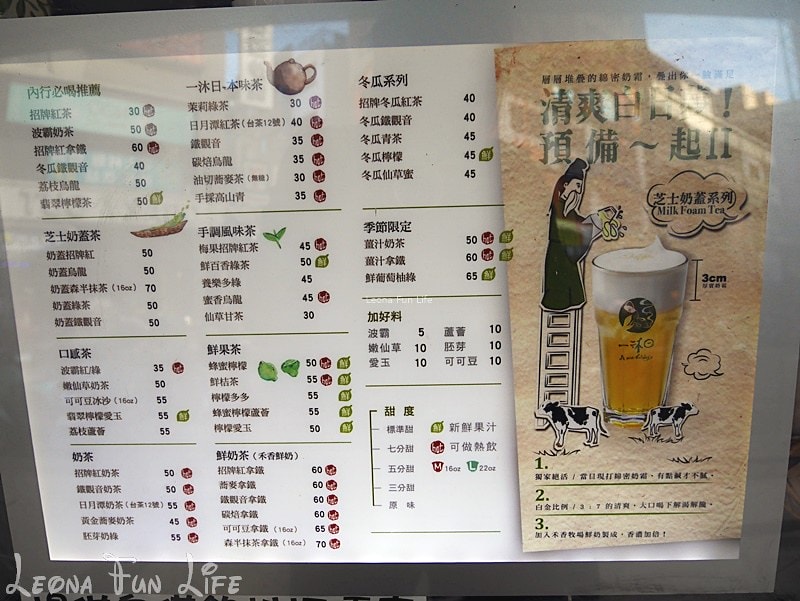 內行必喝推薦
招牌紅茶 30
波霸奶茶 50
招牌紅拿鐵 60
冬瓜鐵觀音 40
荔枝烏龍 50
翡翠檸檬茶 50
芝士奶蓋茶
奶蓋招牌紅 50
奶蓋烏龍 50
奶蓋森半抹茶(16oz) 70
奶蓋綠茶 50
奶蓋鐵觀音 50
口感茶
波霸紅/綠 35
嫩仙草奶茶 50
可可豆冰沙(16oz) 55
翡翠檸檬愛玉 55
荔枝蘆薈 55
奶茶
招牌奶紅茶 50
鐵觀音奶茶 50
日月潭奶茶(台茶12號) 55
黃金蕎麥奶茶 45
胚芽奶綠 55
一沐日-本味茶
茉莉綠茶 30
日月潭紅茶(台茶12號) 40
鐵觀音 35
碳焙烏龍 35
油切蕎麥茶(無糖) 30
手採高山青 35
手調風味茶
梅果招牌紅茶 45
鮮百香綠茶 50
養樂多綠 45
蜜香烏龍 45
仙草甘茶 30
鮮果茶
蜂蜜檸檬 50
鮮桔茶 55
檸檬多多 55
蜂蜜檸檬蘆薈 55
檸檬愛玉 50
鮮奶茶(禾香鮮奶)
招牌紅拿鐵 60
蕎麥拿鐵 60
鐵觀音拿鐵 60
碳焙拿鐵 60
可可豆拿鐵(16oz) 65
森半抹茶拿鐵(16oz) 70
冬瓜系列
招牌冬瓜紅茶 40
冬瓜鐵觀音 40
冬瓜青茶 40
冬瓜檸檬 45
冬瓜仙草蜜 45
季節限定
薑汁奶茶 50
薑汁拿鐵 60
鮮葡萄柚綠 65
Leona Fun Life
加好料
波霸 5 蘆薈 10
嫩仙草 10 胚芽 10
愛玉 10 可可豆 10
甜度
標準甜
七分甜
五分甜
三分甜
原味
鮮 新鮮果汁
可做熱飲
M 16oz L 22oz
層層堆疊的綿密奶霜，疊出你
清爽白日
預備～起!!
芝士奶蓋系列
Milk Foam Tea
3cm
一沐日
1.
獨家絕活/當日現打綿密奶霜，有點鹹才不膩。
2.
白金比例/3:7的清爽，大口喝下解渴解膩。
3.
加入禾香牧場鮮奶製成，香濃加倍！
LEONA FUN LIFE